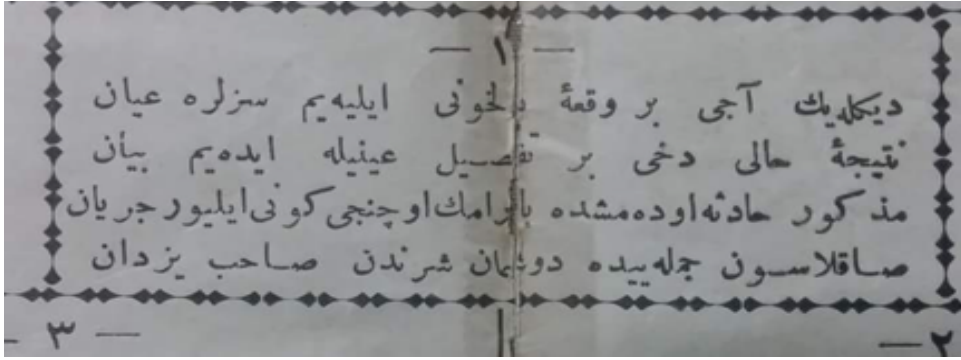 — ١ —
ديكله‌يك آجى بر وقعهٔ بالخونى ايليه‌يم سزلره عيان
نتيجهٔ حالى دخى بر تفصيل عينيله ايده‌يم بيأن
مذكور حادثه اوده‌مشده بايرامك اوچنجى كونى ايليور جريان
صاقلاسون جمله‌ييده دوشمان شرندن صاحب يزدان
— ٢
— ٣ —